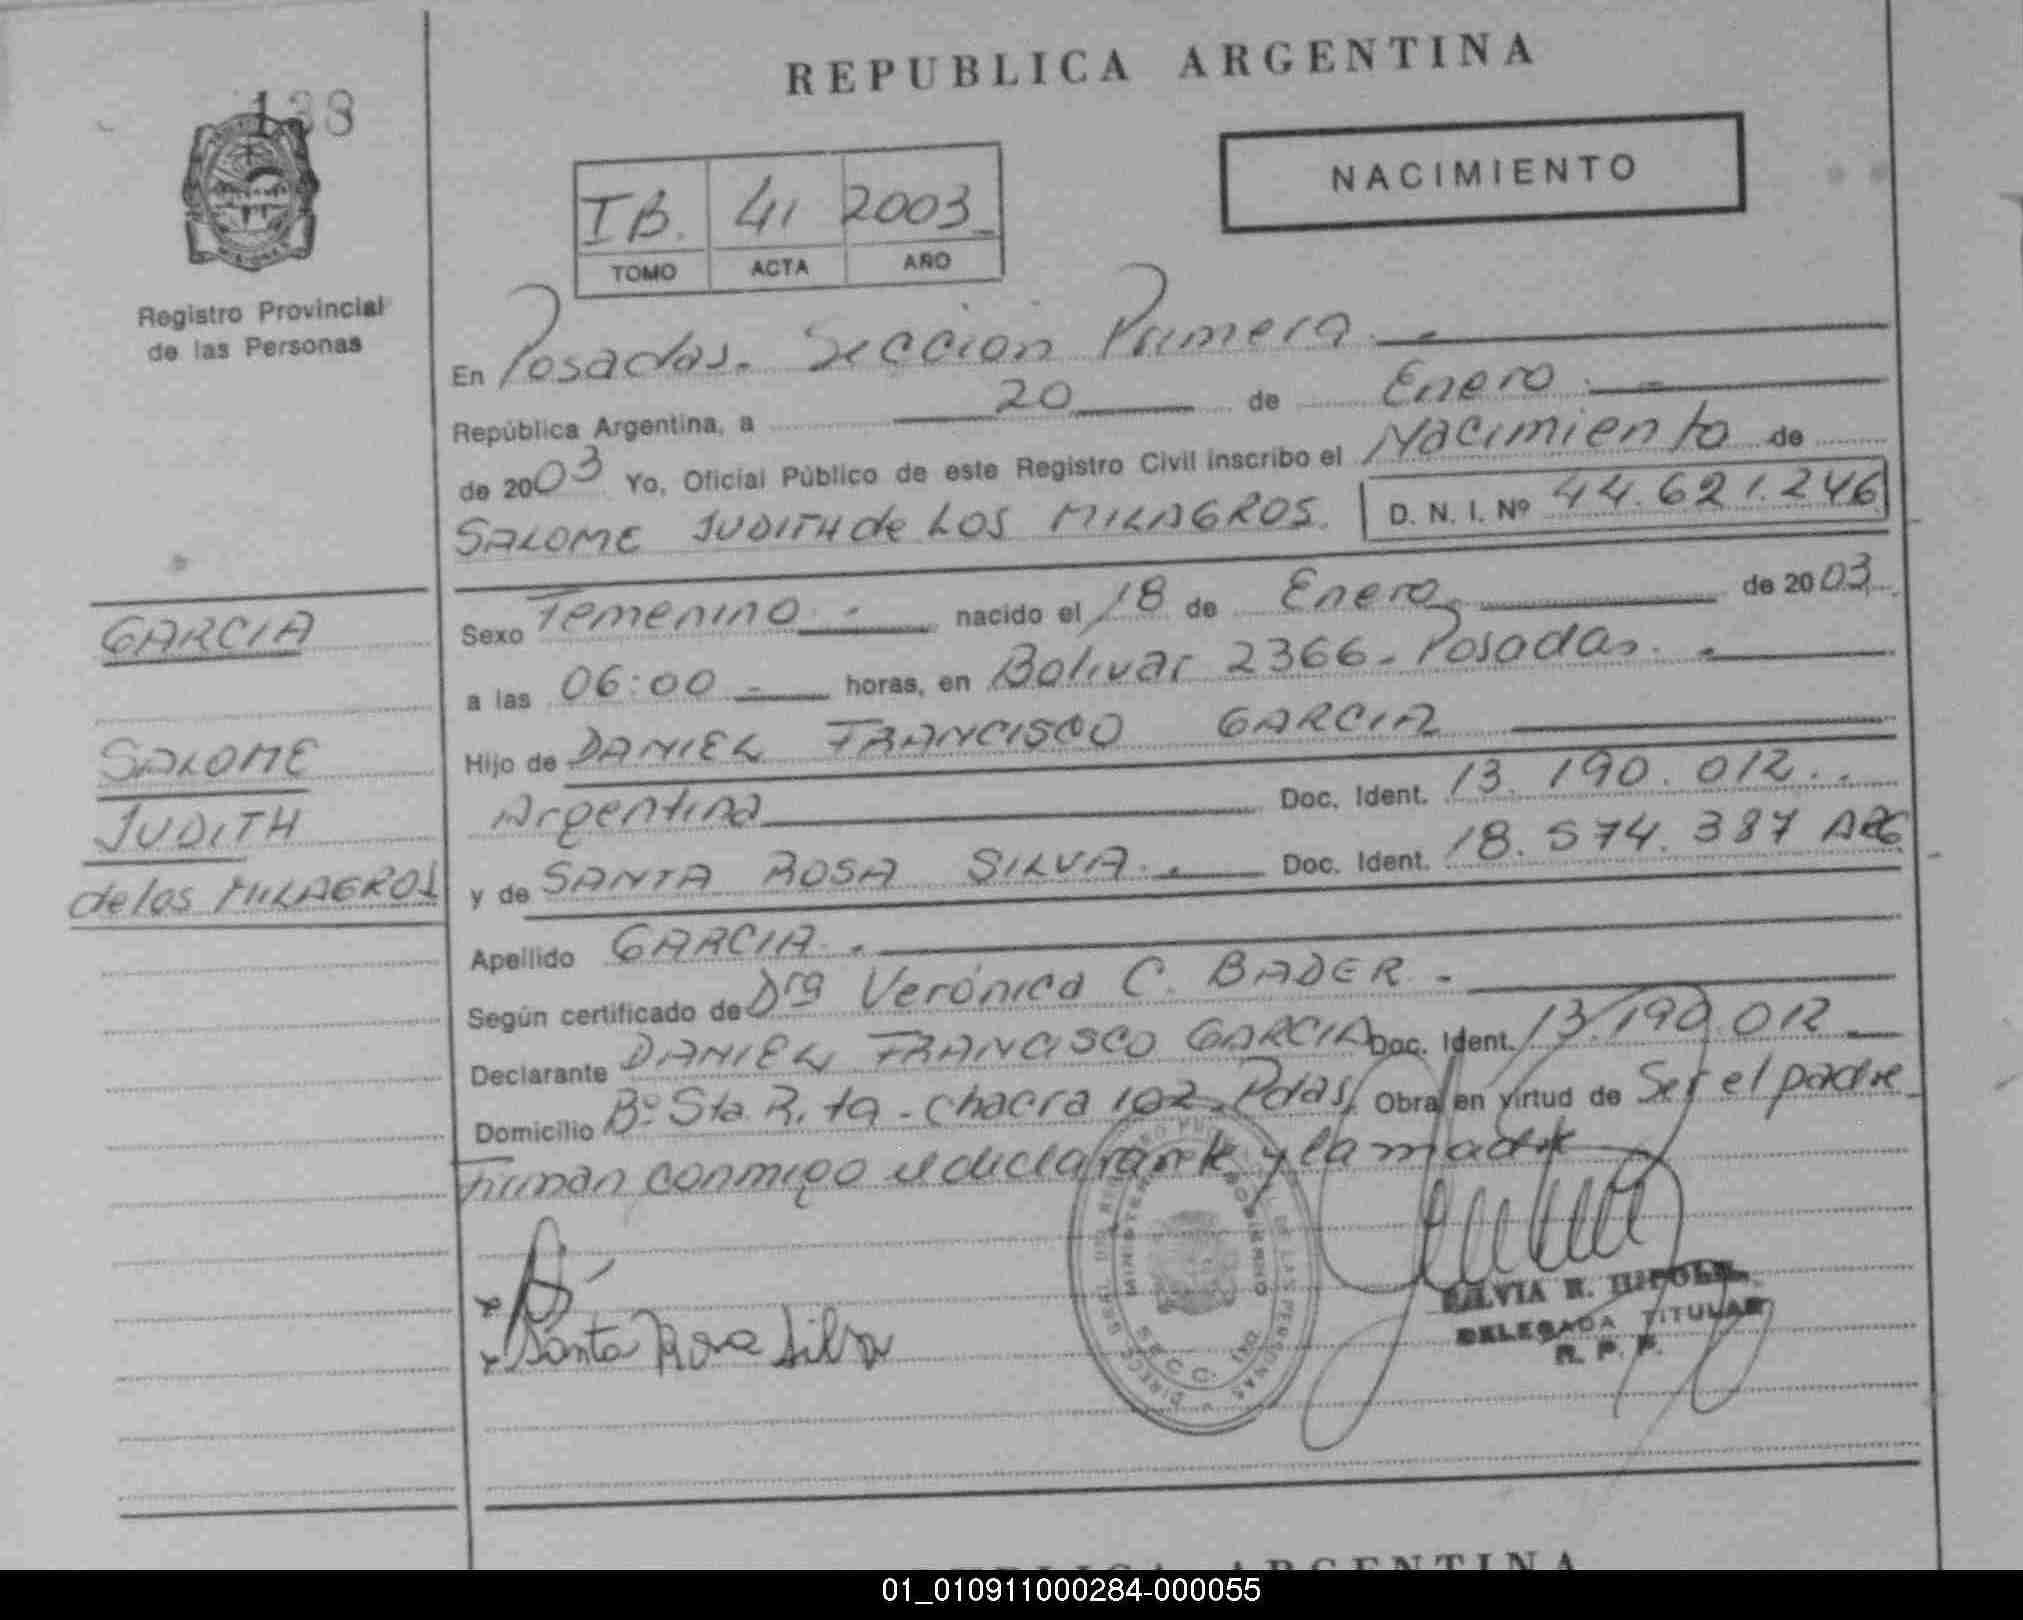 REPUBLICA ARGENTINA
138
NACIMIENTO
IB. 41 2003
TOMO ACTA AÑO
Registro Provincial
de las Personas
En Posadas. Sección Primera.
República Argentina, a 20 de Enero.
de 2003 Yo, Oficial Público de este Registro Civil inscribo el Nacimiento de
SALOME JUDITH de LOS MILAGROS. D. N. I. Nº 44.621.246
GARCIA
SALOME
JUDITH
de los MILAGROS
Sexo Femenino. nacido el 18 de Enero de 2003.
a las 06:00 horas, en Bolivar 2366. Posadas.
Hijo de DANIEL FRANCISCO GARCIA
Argentina Doc. Ident. 13.190.012.
y de SANTA ROSA SILVA. Doc. Ident. 18.574.387 ARG
Apellido GARCIA.
Según certificado de Dra Verónica C. BADER.
Declarante DANIEL FRANCISCO GARCIA Doc. Ident. 13.190.012
Domicilio Bº Sta. Rita - chacra 102. Pdas. Obra en virtud de Ser el padre
Firman conmigo el declarante y la madre
Santa Rosa Silva
SILVIA R.
DELEGADA TITULAR
R. P. P.
REPUBLICA ARGENTINA
01_010911000284-000055